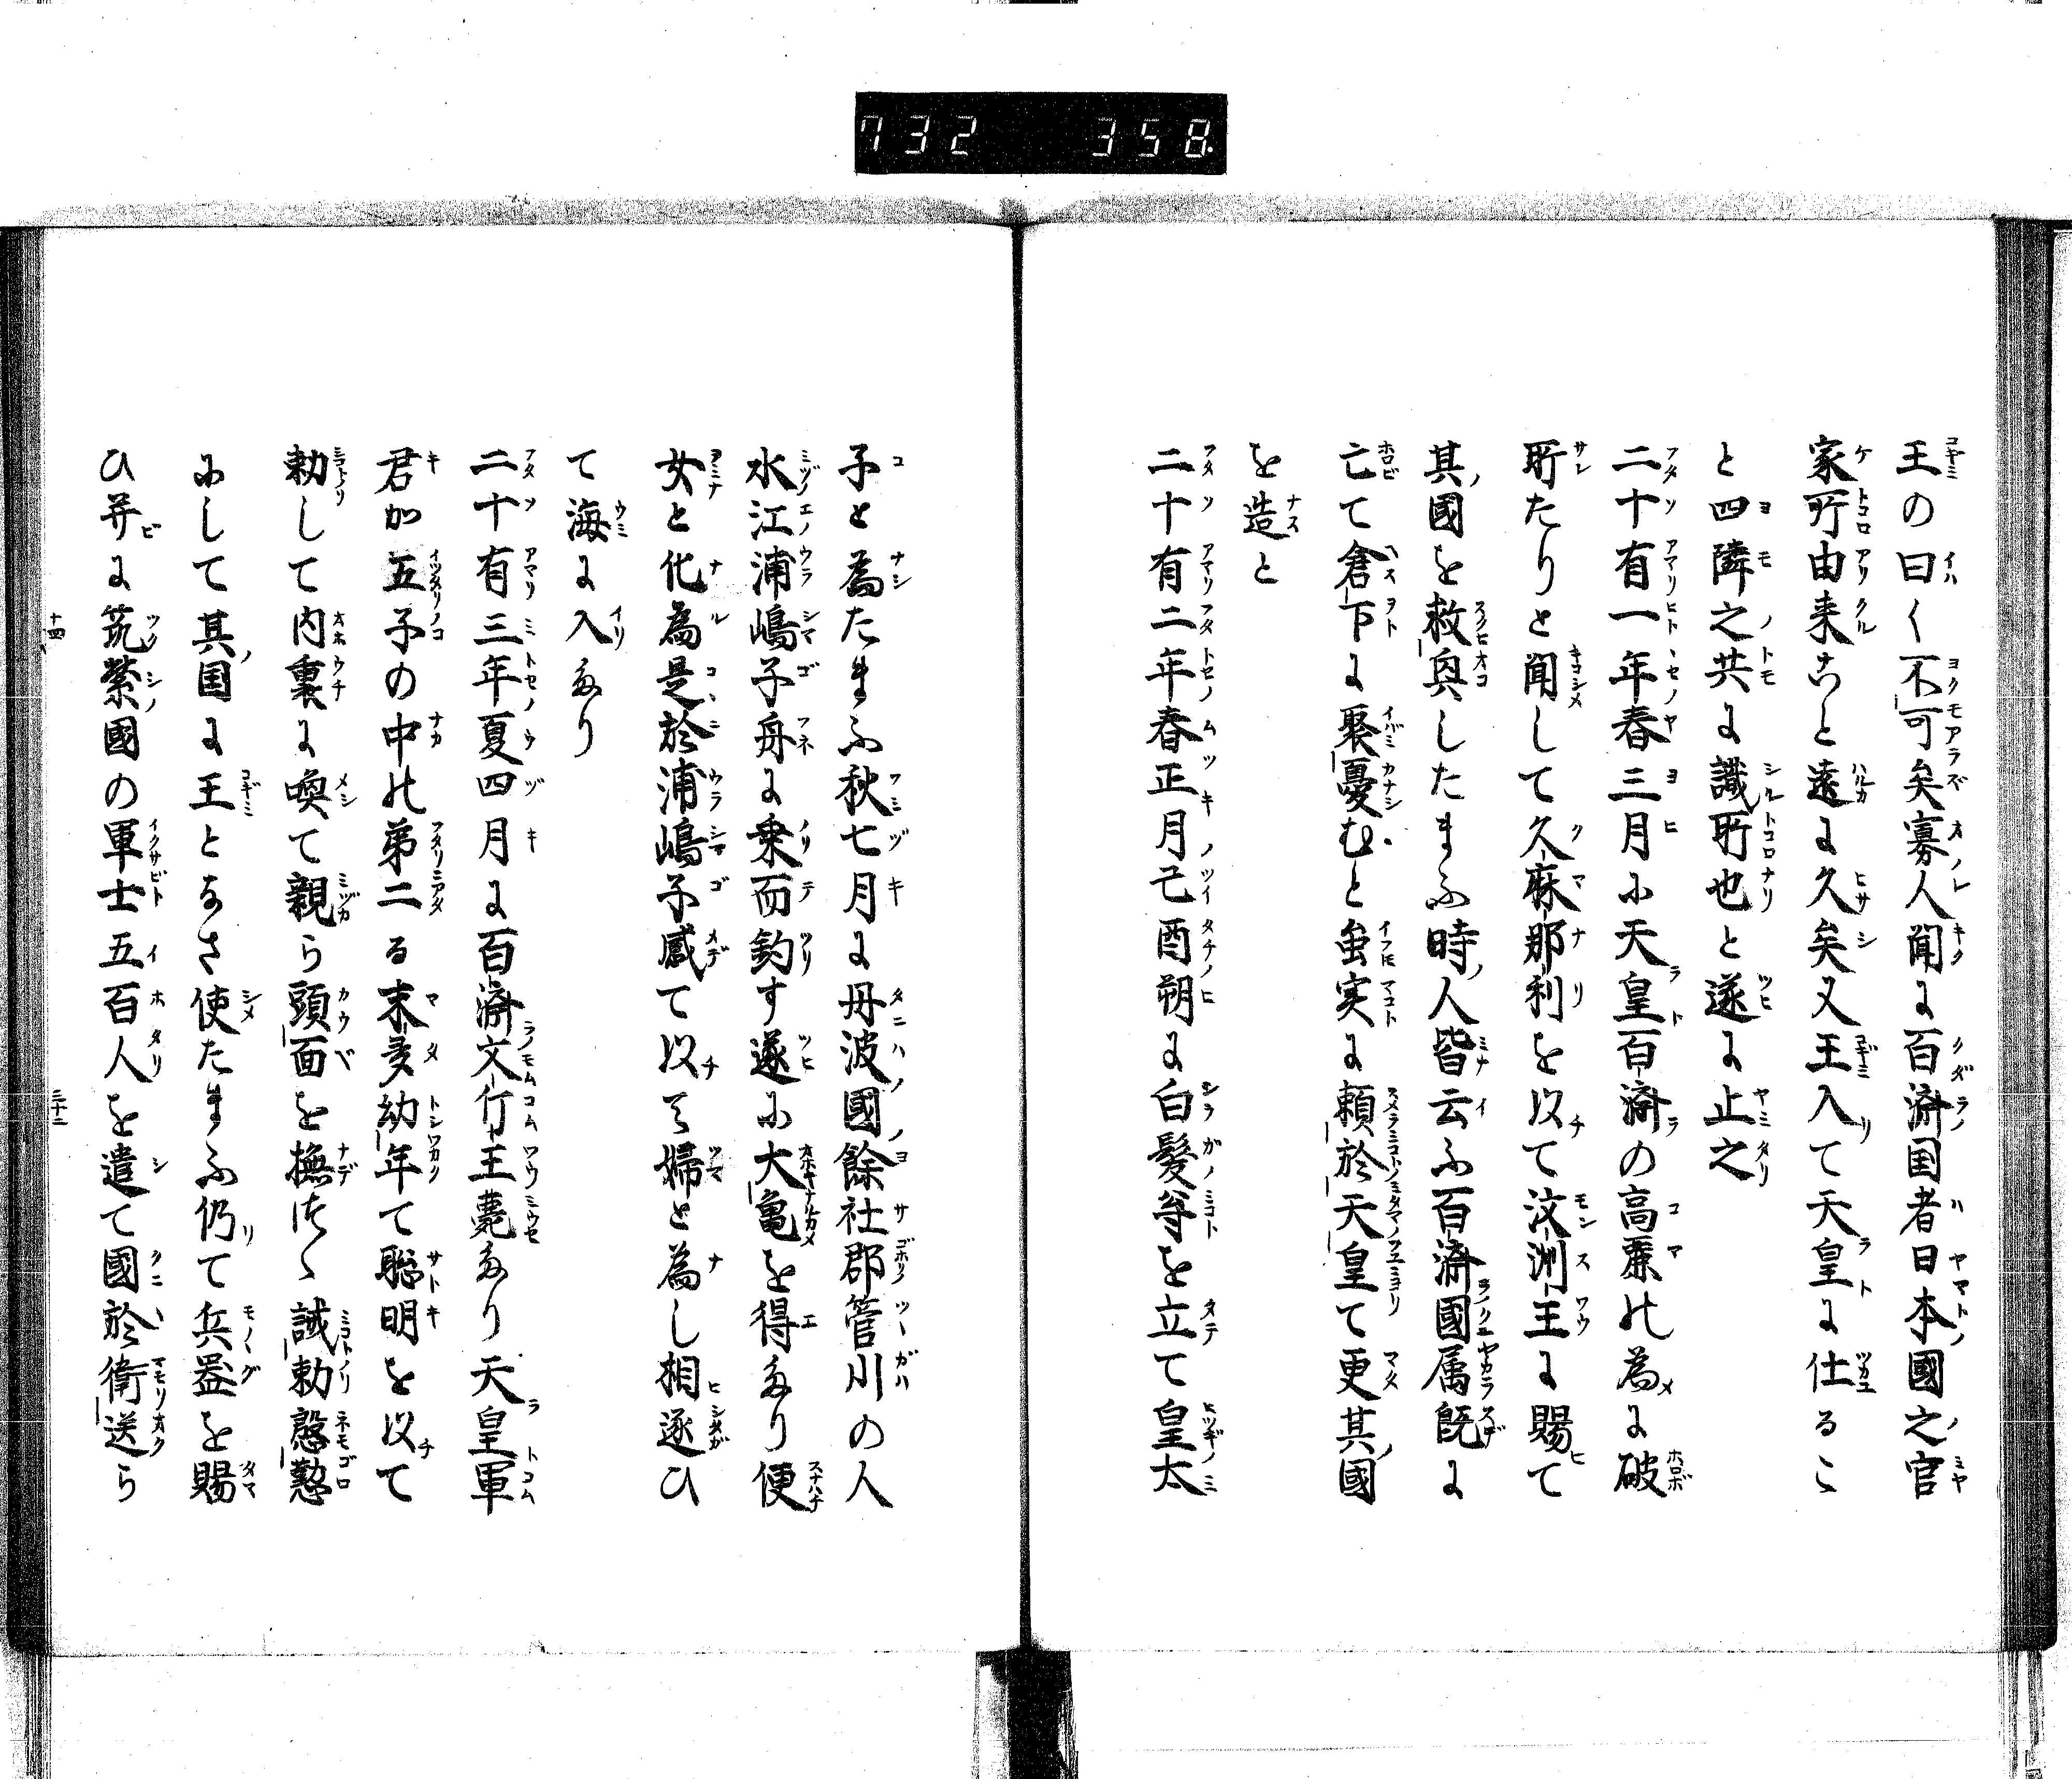 732 358
王の曰く不可矣寡人聞に百済国者日本國之官
家所由来こと遠に久矣又王入て天皇に仕るこ
と四隣之共に識所也と遂に止之
二十有一年春三月に天皇百済の高麗の為に破
所たりと聞して久麻那利を以て汶洲王に賜て
其國を救興したまふ時人皆云ふ百済國属既に
亡て倉下に聚憂むと虽実に頼於天皇て更其國
を造と
二十有二年春正月己酉朔に白髪尊を立て皇太
子と為たまふ秋七月に丹波國餘社郡管川の人
水江浦嶋子舟に乗而釣す遂に大亀を得たり便
女と化為是於浦嶋子感て以て婦と為し相逐ひ
て海に入たり
二十有三年夏四月に百済文斤王薨たり天皇軍
君か五子の中の第二る末多幼年て聡明を以て
勅して内裏に喚て親ら頭面を撫けく誡勅慇懃
にして其国に王となさ使たまふ仍て兵器を賜
ひ并に筑紫國の軍士五百人を遣て國於衛送ら
十四 三十三